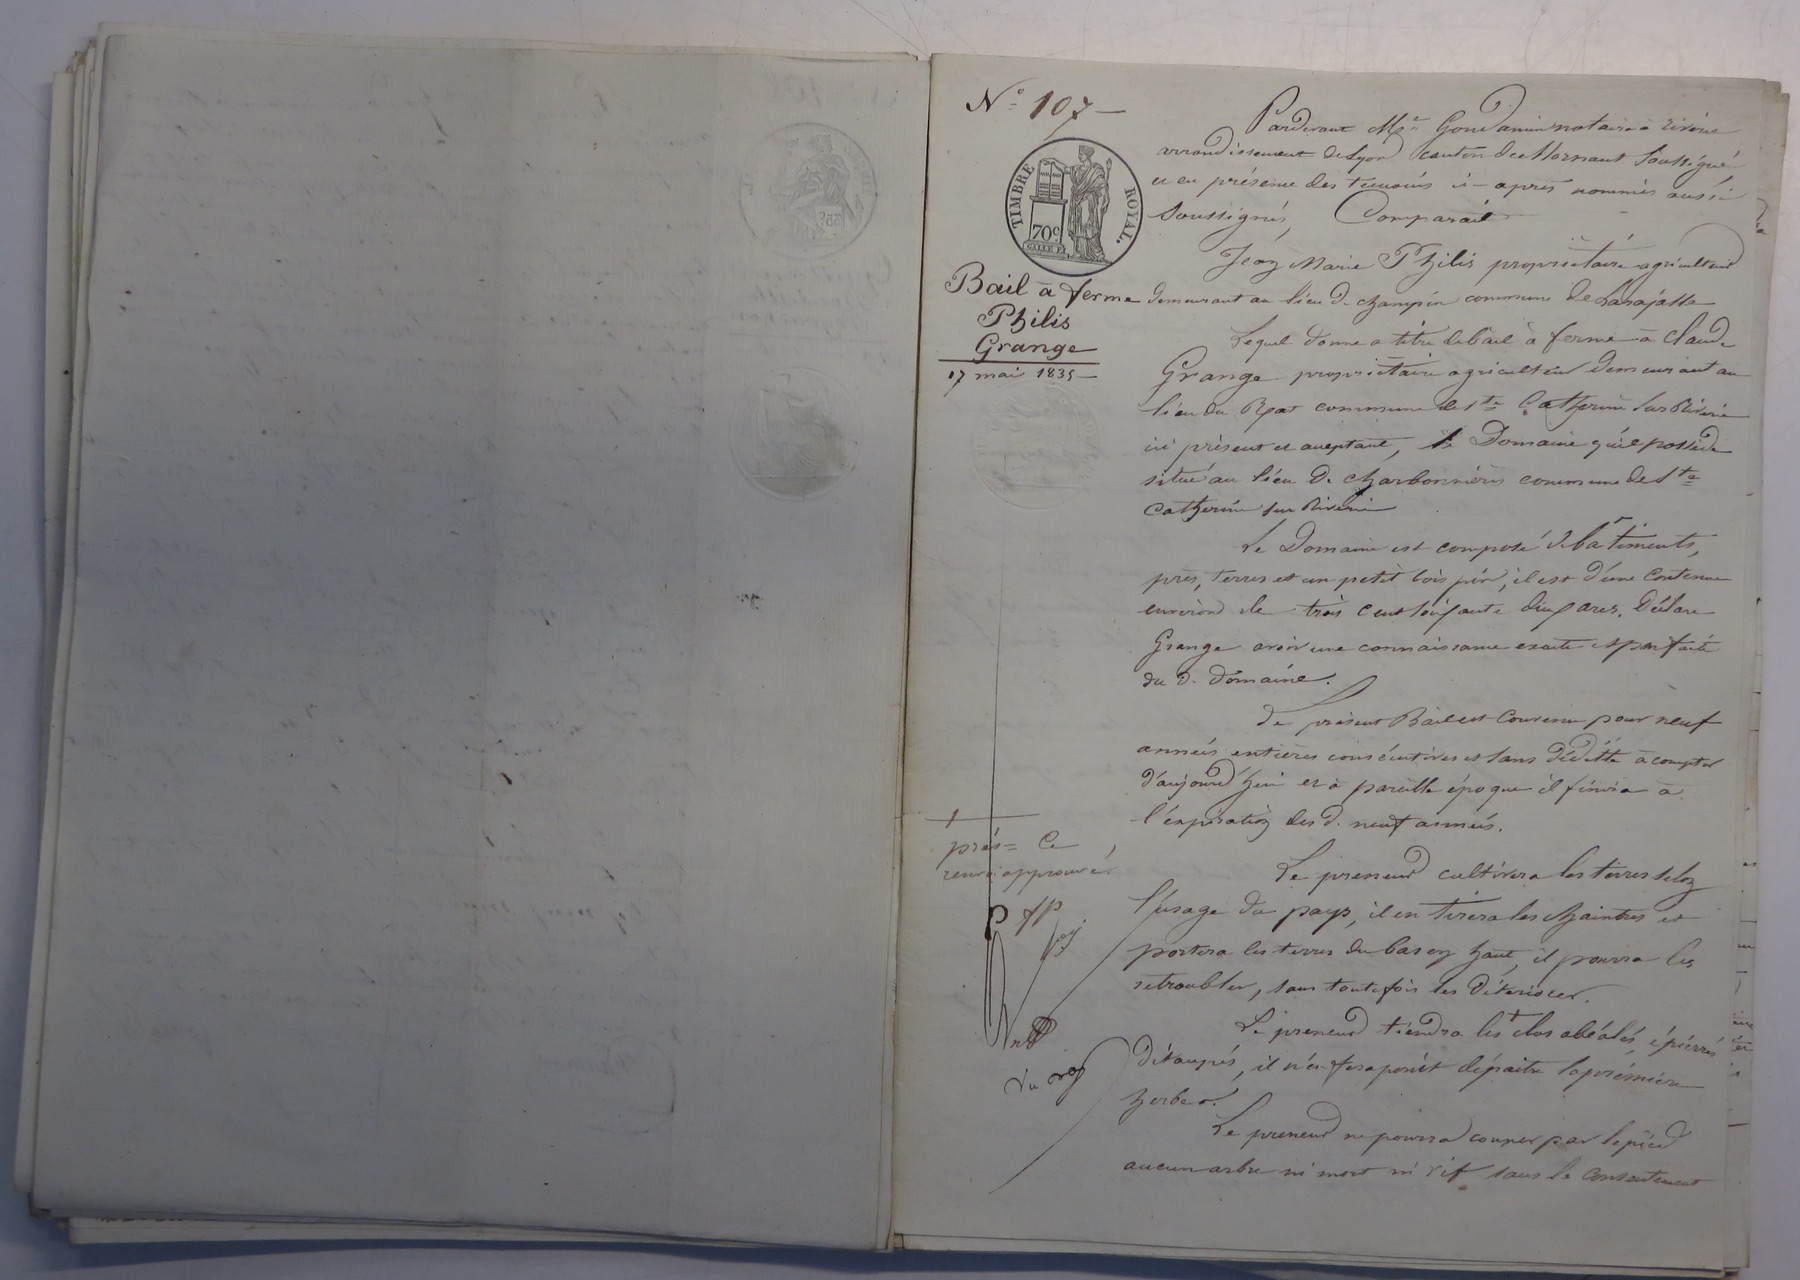 N° 107
TIMBRE ROYAL.
70c
Bail à ferme
Philis
Grange
17 mai 1835
Pardevant Me Goudamin notaire à riverie
arrondissement de Lyon canton de Mornant soussigné
et en présence des temoins ci-après nommés aussi
soussignés, Comparait
Jean Marie Philis propriétaire agriculteur
demeurant au lieu de champin commune de Larajasse
Lequel donne a titre de bail à ferme à Claude
Grange propriétaire agriculteur demeurant au
lieu du Rpat commune de Ste Catherine sur Riverie
ici présent et acceptant, le Domaine qu'il possède
situé au lieu de charbonnières commune de Ste
Catherine sur Riverie
Le Domaine est composé de bâtiments,
près, terres et un petit bois pin, il est d'une contenue
environ de trois cent soixante dix ares. Déclare
Grange avoir une connaissance exacte et parfaite
du d. domaine.
Le présent Bail est convenu pour neuf
années entières consécutives et sans dédite à compter
d'aujourd'hui et à pareille époque il finira à
l'expiration des d. neuf années.
Le preneur cultivera les terres selon
l'usage du pays, il en tirera les chaintres et
portera les terres du bas en haut, il pourra les
retroubler, sans toutefois les détériorer.
Le preneur tiendra les clos aléalés, épierrés
détaupés, il n'en fera point dépaitre la première
herbe.
Le preneur ne pourra couper par le pied
aucun arbre ni mort ni vif sans le consentement
près = Ce
renvoi approuvé.